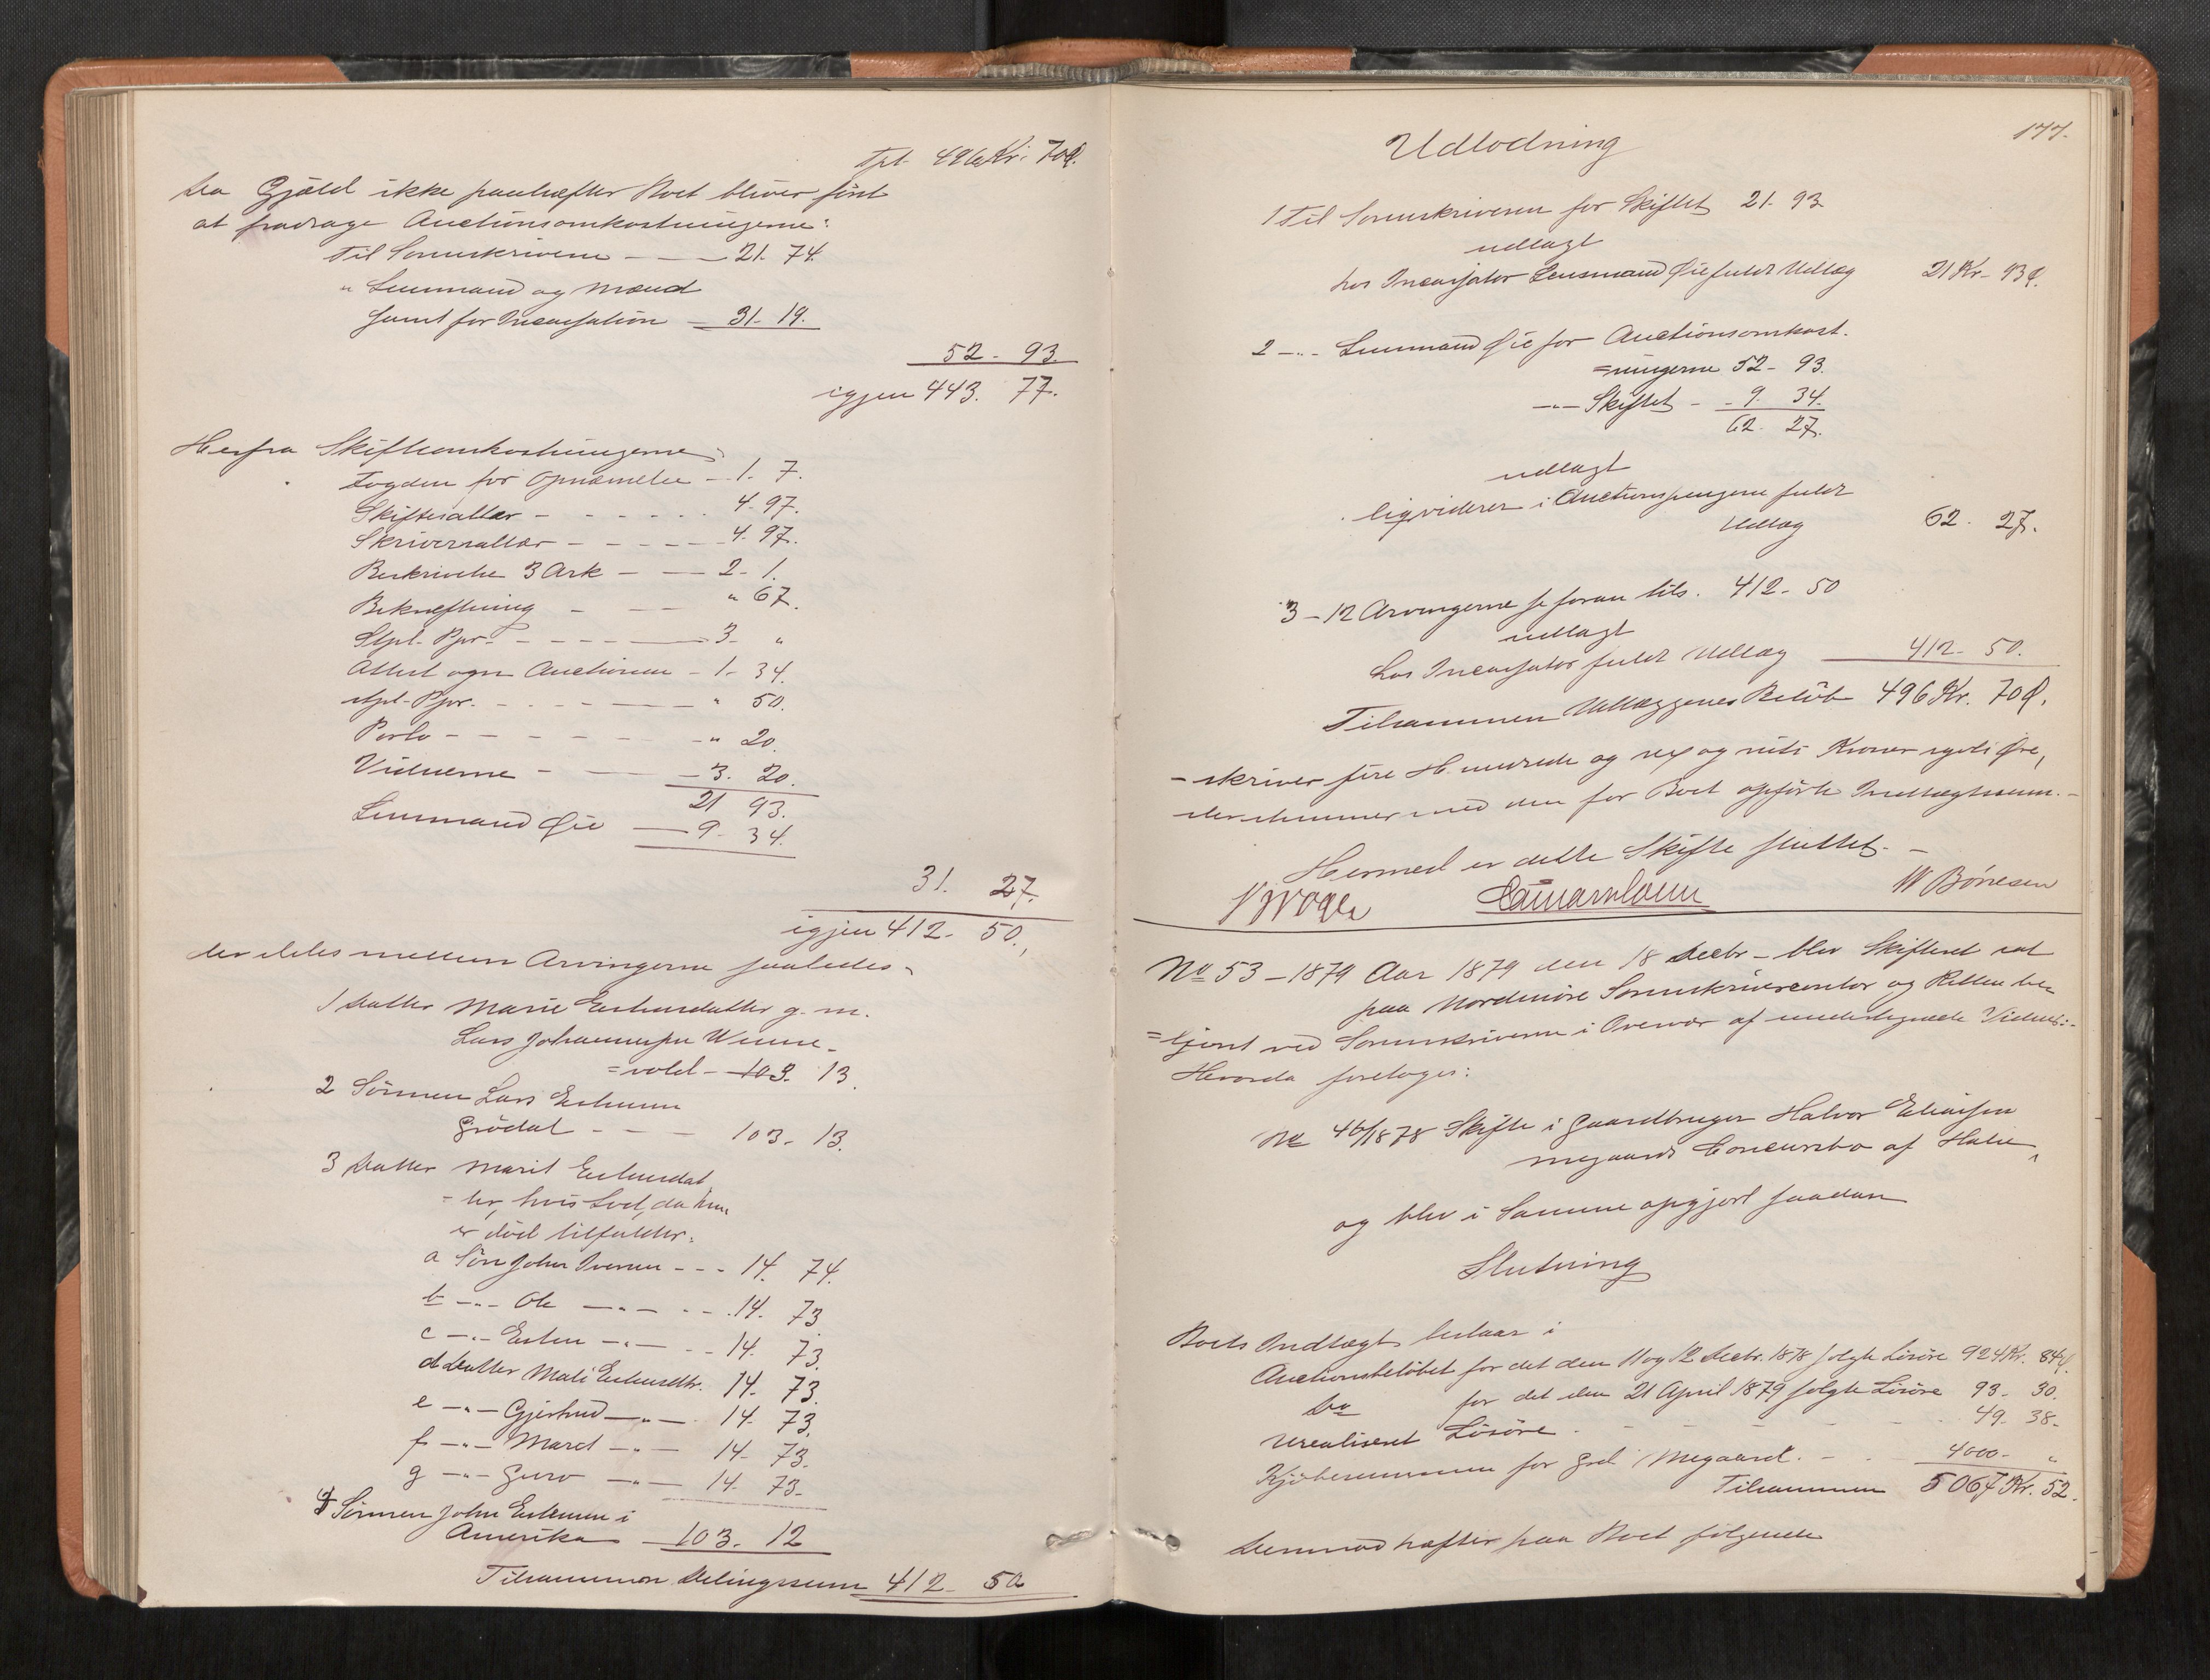 Tpt. 496 Kr. 70 Ø.
Da Gjæld ikke paahæfter Boet bliver først
at fradrage Auctionsomkostningerne:
Til Sorenskriveren - 21. 74.
" Lensmand og Mænd
samt for Incassation - 31 - 19.
52 - 93.
igjen 443. 77.
Herfra Skifteomkostningerne
Fogden for Opnævnelse - 1. 7.
Skiftesallær - 4 - 97.
Skriversallær - 4 - 97.
Beskrivelse 3 Ark - 2 - 1.
Bekræftning - " 67.
Stpl. Ppr. - 3 - "
Attest ogsn Auctionen - 1 - 34.
stpl. Ppr. - " 50.
Porto - " 20.
Vidnerne - 3. 20.
21 93.
Lensmand Øie - 9 - 34.
31. 27.
igjen 412 - 50.,
der deles mellem Arvingerne saaledes,
1 Datter Marie Estensdatter g. m.
Lars Johannessen Winne-
=vold - 103. 13.
2 Sønnen Lars Estensen
Grødal - 103 - 13.
3 Datter Marit Estensdat
=ter, hvis Lod, da hun
er død tilfalder:
a Søn John Iversen - 14. 74.
b -"- Ole -"- 14. 73
c -"- Esten -"- 14. 73.
d Datter Mali Estensdtr. 14. 73.
e -"- Gjertrud -"- 14. 73.
f -"- Maret -"- 14 - 73.
g -"- Guro -"- 14. 73.
4 Sønnen John Estensen i
Amerika - 103. 12
Tilsammen Delingssum 412 - 50
177.
Udlodning
1 Til Sorenskriveren for Skiftet 21. 93
udlagt
hos Incassator Lensmand Øie fuldt Udlæg 21 Kr. 93 Ø.
2 -"- Lensmand Øie for Auctionsomkost-
=ningerne 52 - 93.
-"- Skiftet - 9. 34.
62. 27.
udlagt
liqviderer i Auctionspengene fuldt
Udlæg 62. 27.
3 - 12 Arvingerne se foran tils. 412 - 50
udlagt
hos Incassator fuldt Udlæg 412 - 50.
Tilsammen Udlæggenes Beløb 496 Kr. 70 Ø.
- skriver fire Hundrede og sex og niti Kroner sytti Øre,
der stemmer med den for Boet opførte Indtægtssum. -
Hermed er dette Skifte sluttet. -
W Børresen
No 53 - 1879 Aar 1879 den 18 Decbr - blev Skifteret sat
paa Nordmøre Sorenskrivercontor og Retten be-
=tjent ved Sorenskriveren i Overvær af undertegnede Vidner:
Hvorda foretoges:
No 46/1878 Skifte i Gaardbruger Halvor Eliassen
Megaards Concursbo af Halse,
og blev i Samme opgjort saadan
Slutning
Boets Indtægt bestaar i
Auctionsbeløbet for det den 11 og 12 Decbr. 1878 solgte Løsøre 924 Kr. 84 Ø.
Do for det den 21 April 1879 solgte Løsøre 93 - 30.
urealiseret Løsøre - 49. 38.
Kjøbesummen for Grd. Megaard. - 4000 - "
Tilsammen 5067 Kr. 52.
Derimod hæfter paa Boet følgende